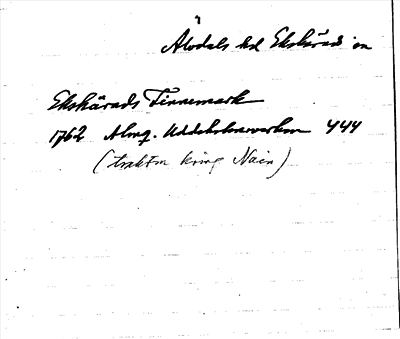 Älvdals hd Ekshärad sn
Ekshärads Finnemark
1762 Almq. Uddeholmsverken 444
(trakten kring Nain)